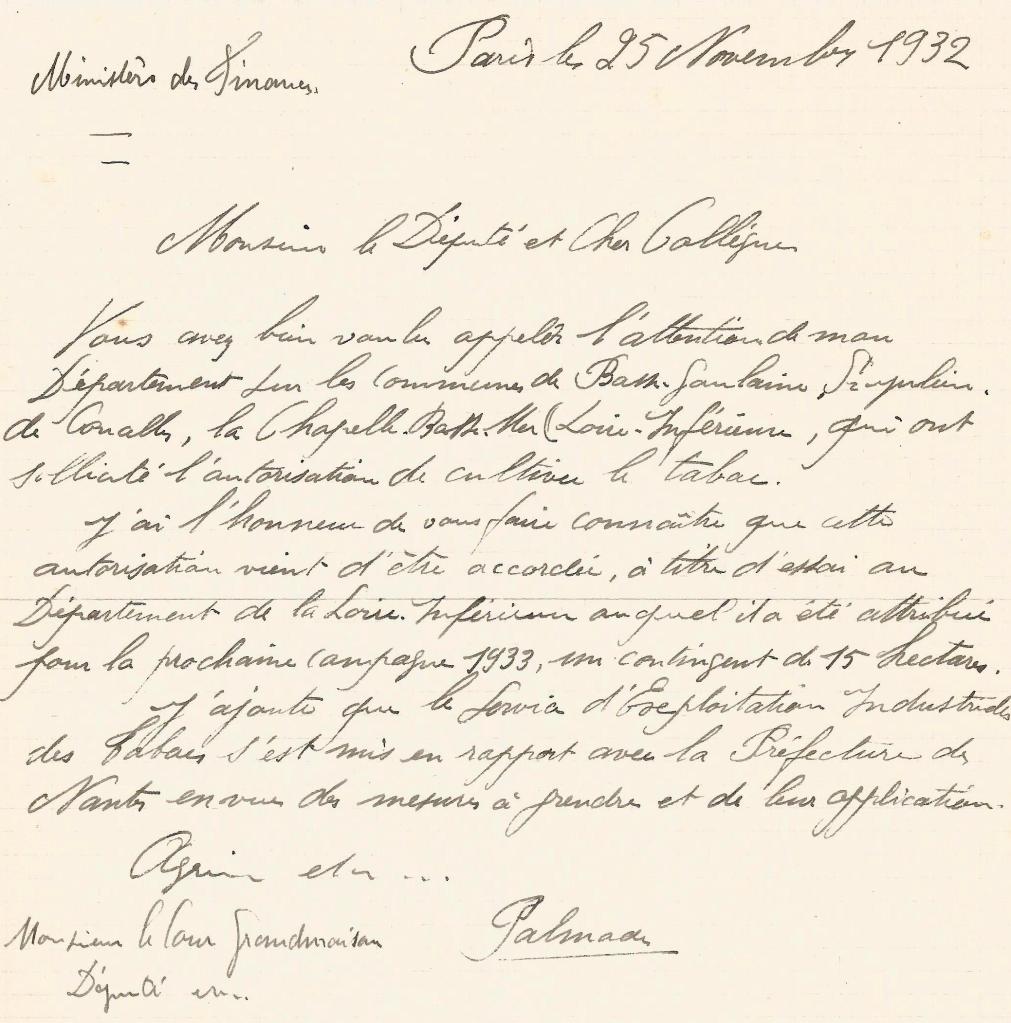 Paris le 25 Novembre 1932
Ministère des Finances.
Monsieur le Député et Cher Collègue
Vous avez bien voulu appeler l'attention de mon
Département sur les communes de Basse-Goulaine, St Julien.
de Concelles, la Chapelle-Basse-Mer (Loire-Inférieure, qui ont
sollicité l'autorisation de cultiver le tabac.
J'ai l'honneur de vous faire connaître que cette
autorisation vient d'être accordée, à titre d'essai au
Département de la Loire-Inférieure auquel il a été attribué
pour la prochaine campagne 1933, un contingent de 15 hectares.
J'ajoute que le Service d'Exploitation Industrielle
des Tabacs s'est mis en rapport avec la Préfecture de
Nantes en vue des mesures à prendre et de leur application.
Agréez etc ...
Monsieur le Cour Grandmaison
Palmade
Député etc..